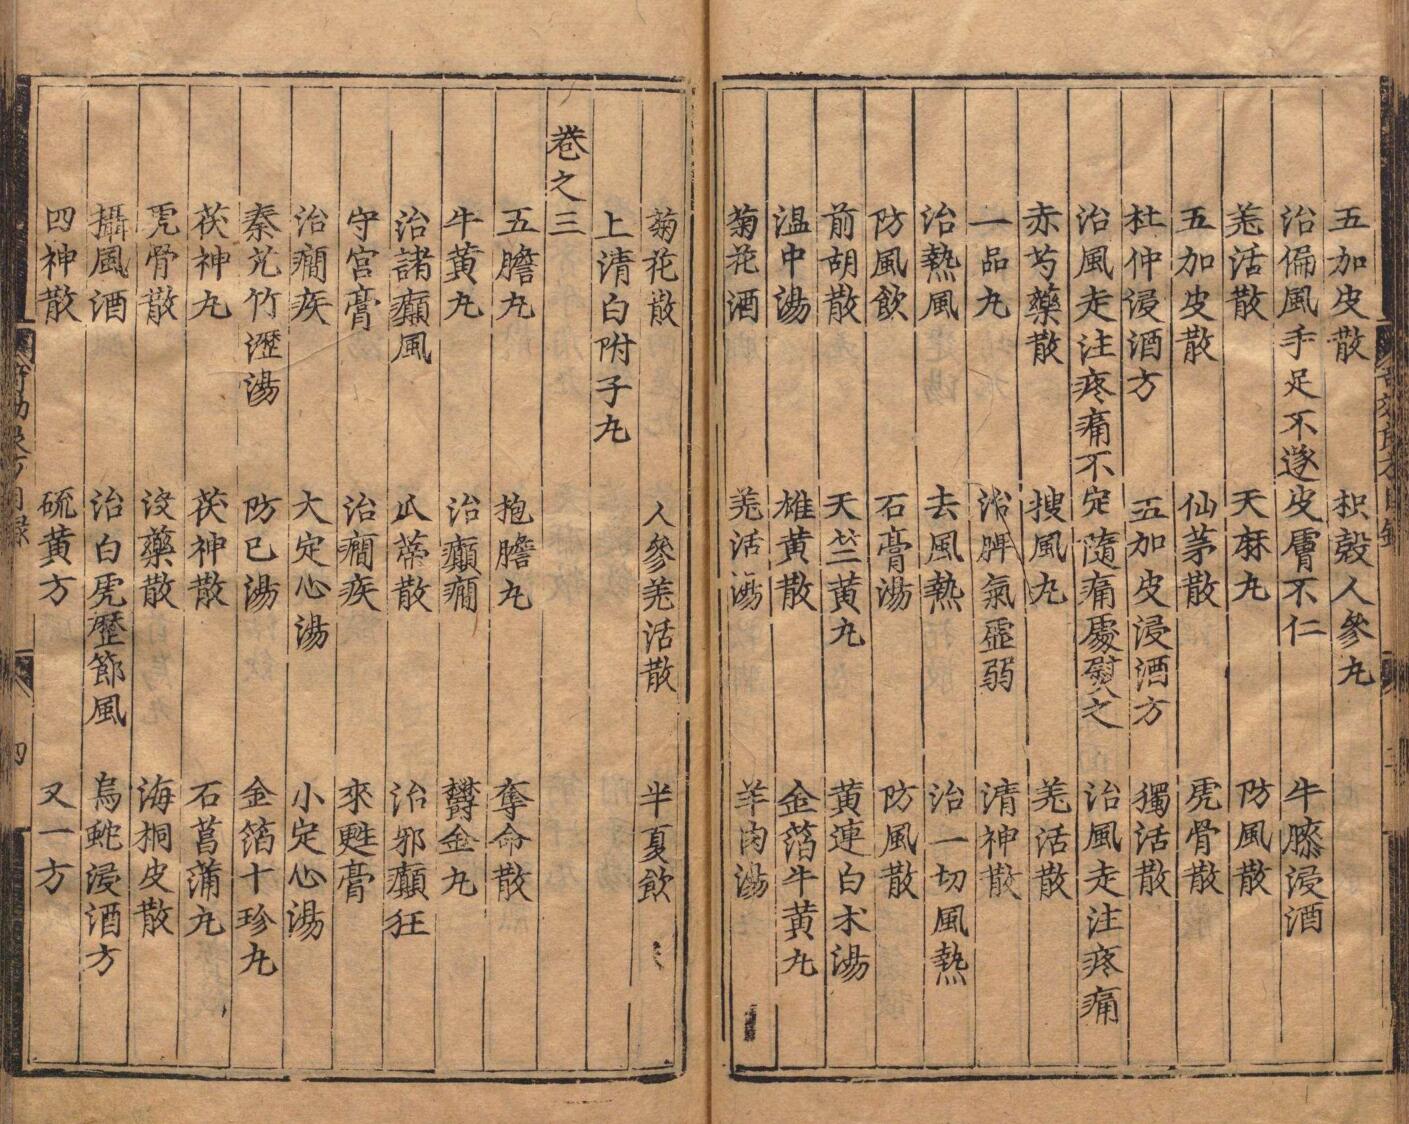 五加皮散 枳殼人參丸
治偏風手足不遂皮膚不仁 牛膝浸酒
羗活散 天麻丸 防風散
五加皮散 仙茅散 虎骨散
杜仲浸酒方 五加皮浸酒方 獨活散
治風走注疼痛不定隨痛處熨之 治風走注疼痛
赤芍藥散 搜風丸 羗活散
一品丸 治脾氣虛弱 清神散
治熱風 去風熱 治一切風熱
防風飲 石膏湯 防風散
前胡散 天竺黃丸 黃連白术湯
溫中湯 雄黃散 金箔牛黃丸
菊花酒 羗活湯 羊肉湯
菊花散 人參羗活散 半夏飲
上清白附子丸
卷之三
五膽丸 抱膽丸 奪命散
牛黃丸 治癲癇 鬱金丸
治諸癲風 瓜蔕散 治邪癲狂
守宮膏 治癇疾 來甦膏
治癇疾 大定心湯 小定心湯
秦艽竹瀝湯 防已湯 金箔十珍丸
茯神丸 茯神散 石菖蒲丸
虎骨散 沒藥散 海桐皮散
攝風酒 治白虎歷節風 烏蛇浸酒方
四神散 硫黃方 又一方
目録 四